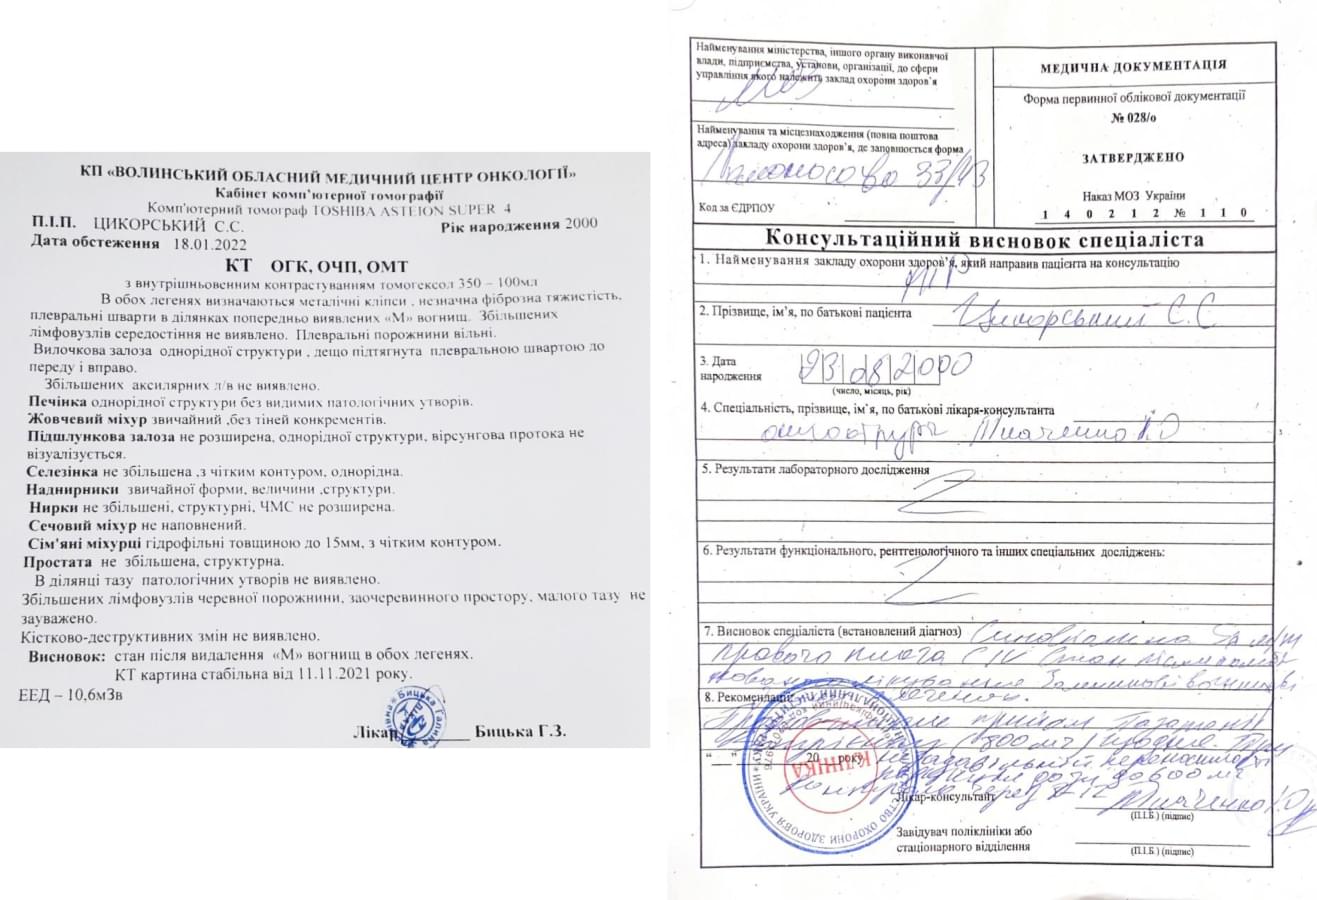 КП «ВОЛИНСЬКИЙ ОБЛАСНИЙ МЕДИЧНИЙ ЦЕНТР ОНКОЛОГІЇ»
Кабінет комп'ютерної томографії
Комп'ютерний томограф TOSHIBA ASTEION SUPER 4
П.І.П. ЦИКОРСЬКИЙ С.С. Рік народження 2000
Дата обстеження 18.01.2022
КТ ОГК, ОЧП, ОМТ
з внутрішньовенним контрастуванням томогексол 350 – 100мл
В обох легенях визначаються металічні кліпси , незначна фіброзна тяжистість,
плевральні шварти в ділянках попередньо виявлених «М» вогнищ. Збільшених
лімфовузлів середостіння не виявлено. Плевральні порожнини вільні.
Вилочкова залоза однорідної структури , дещо підтягнута плевральною швартою до
переду і вправо.
Збільшених аксилярних л/в не виявлено.
Печінка однорідної структури без видимих патологічних утворів.
Жовчевий міхур звичайний ,без тіней конкрементів.
Підшлункова залоза не розширена, однорідної структури, вірсунгова протока не
візуалізується.
Селезінка не збільшена ,з чітким контуром, однорідна.
Наднирники звичайної форми, величини ,структури.
Нирки не збільшені, структурні, ЧМС не розширена.
Сечовий міхур не наповнений.
Сім'яні міхурці гідрофільні товщиною до 15мм, з чітким контуром.
Простата не збільшена, структурна.
В ділянці тазу патологічних утворів не виявлено.
Збільшених лімфовузлів черевної порожнини, заочеревинного простору, малого тазу не
зауважено.
Кістково-деструктивних змін не виявлено.
Висновок: стан після видалення «М» вогнищ в обох легенях.
КТ картина стабільна від 11.11.2021 року.
ЕЕД – 10,6мЗв
Лікар Бицька Г.З.
Найменування міністерства, іншого органу виконавчої
влади, підприємства, установи, організації, до сфери
управління якого належить заклад охорони здоров'я
МОЗ
Найменування та місцезнаходження (повна поштова
адреса) закладу охорони здоров'я, де заповнюється форма
Ломоносова 33/43
Код за ЄДРПОУ
МЕДИЧНА ДОКУМЕНТАЦІЯ
Форма первинної облікової документації
№ 028/о
ЗАТВЕРДЖЕНО
Наказ МОЗ України
1 4 0 2 1 2 № 1 1 0
Консультаційний висновок спеціаліста
1. Найменування закладу охорони здоров'я, який направив пацієнта на консультацію
2. Прізвище, ім'я, по батькові пацієнта Цикорський С.С
3. Дата
народження 23 08 2000
(число, місяць, рік)
4. Спеціальність, прізвище, ім'я, по батькові лікаря-консультанта
Ткаченко
5. Результати лабораторного дослідження
6. Результати функціонального, рентгенологічного та інших спеціальних досліджень:
7. Висновок спеціаліста (встановлений діагноз) Синовіалома
правого плеча
8. Рекомендації
прийом
(800 мг)
до 600 мг
“ ” 20 року
КЛІНІКА
Лікар-консультант Ткаченко
(П.І.Б.) (підпис)
Завідувач поліклініки або
стаціонарного відділення
(П.І.Б.) (підпис)